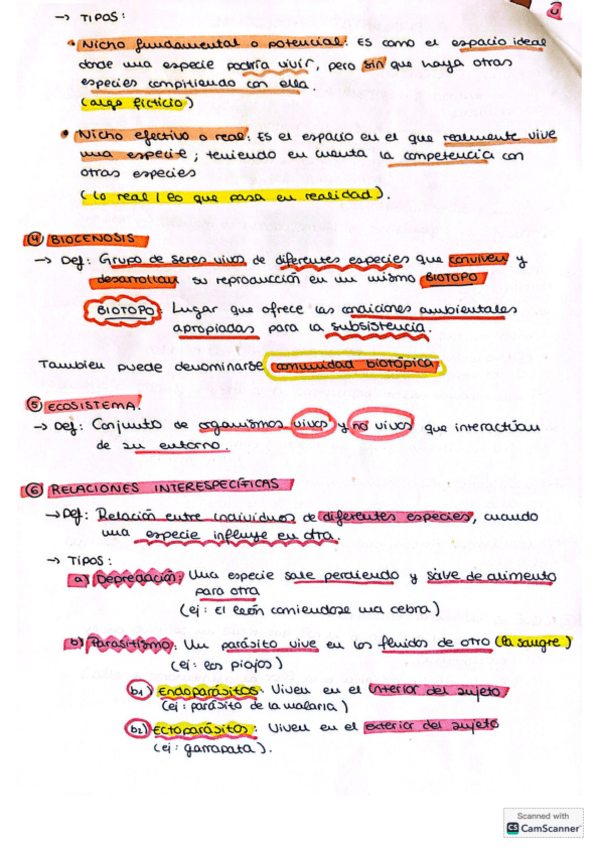 → TIPOS:
• Nicho fundamental o potencial: Es como el espacio ideal
donde una especie podría vivir, pero sin que haya otras
especies compitiendo con ella.
(algo ficticio)
• Nicho efectivo o real: Es el espacio en el que realmente vive
una especie; teniendo en cuenta la competencia con
otras especies
(Lo real / lo que pasa en realidad).
④ BIOCENOSIS
→ Def: Grupo de seres vivos de diferentes especies que conviven y
desarrollan su reproducción en un mismo BIOTOPO
BIOTOPO: Lugar que ofrece las condiciones ambientales
apropiadas para la subsistencia.
También puede denominarse comunidad biotópica
⑤ ECOSISTEMA.
→ Def: Conjunto de organismos vivos y no vivos que interactúan
de su entorno.
⑥ RELACIONES INTERESPECÍFICAS
→ Def: Relación entre individuos de diferentes especies, cuando
una especie influye en otra.
→ TIPOS:
a) Depredación: Una especie sale perdiendo y sirve de alimento
para otra
(ej: El león comiendose una cebra)
b) Parasitismo: Un parásito vive en los fluidos de otro (la sangre)
(ej: los piojos)
b1) Endoparásitos: Viven en el interior del sujeto
(ej: parásito de la malaria)
b2) Ectoparásitos: Viven en el exterior del sujeto
(ej: garrapata).
Scanned with
CS CamScanner